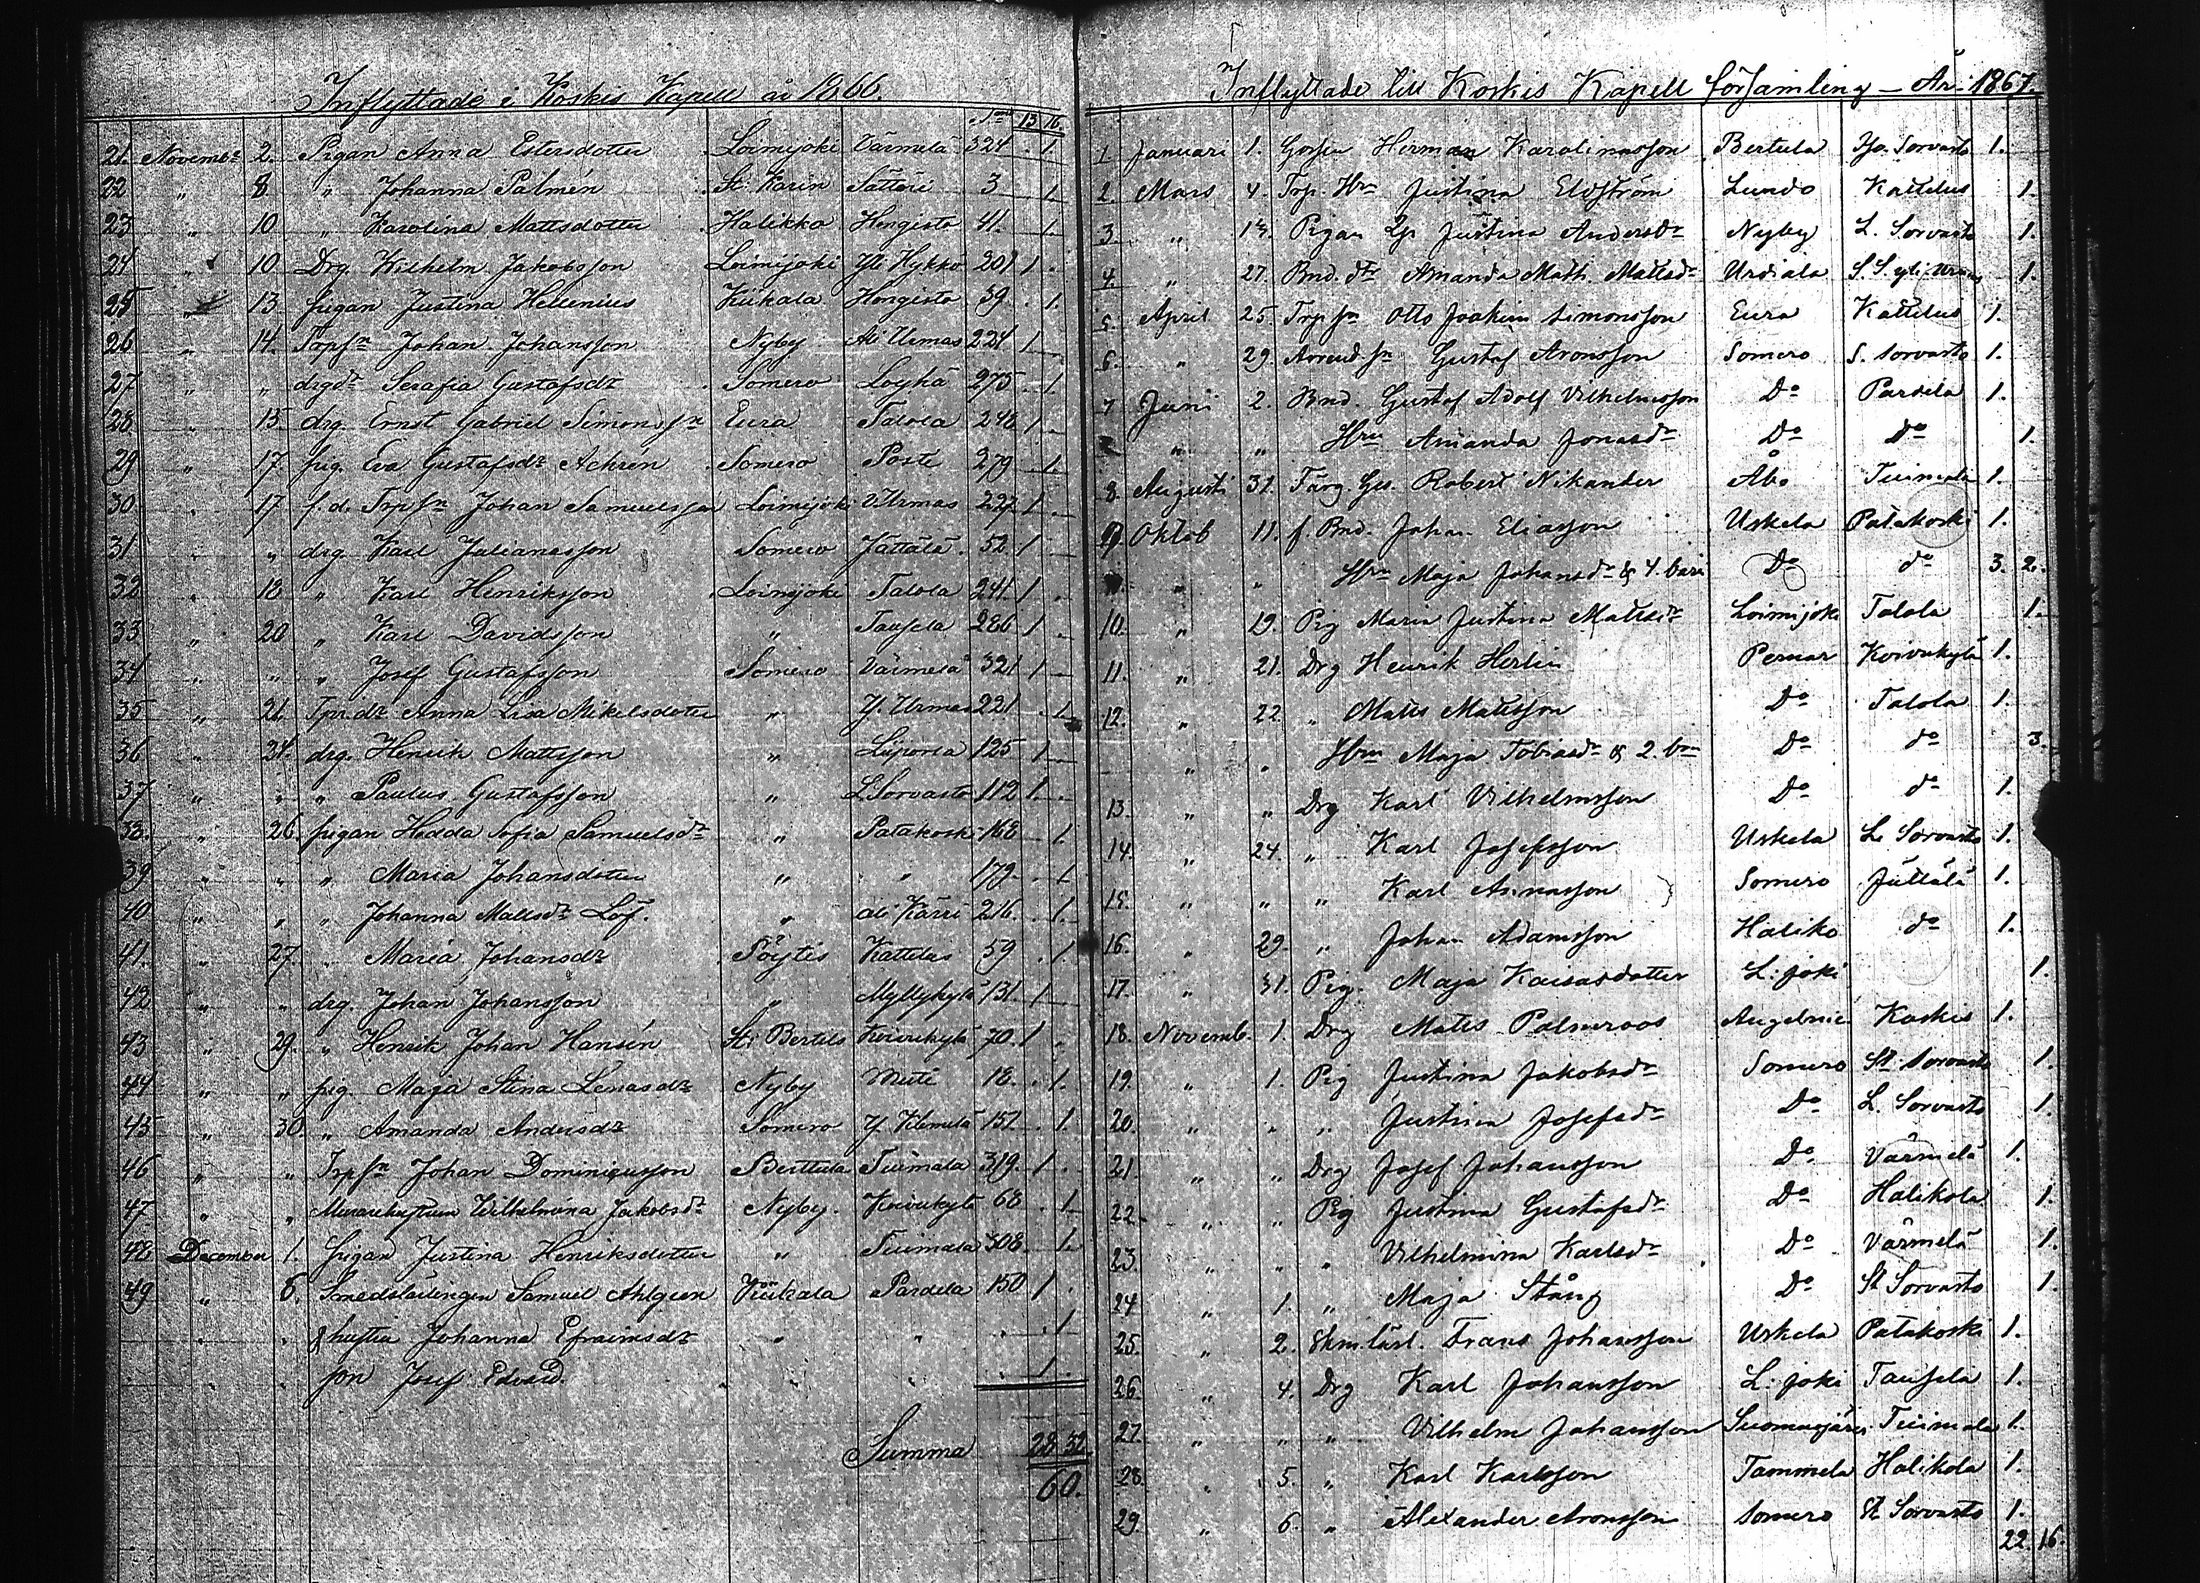 Inflyttade i Koskis Kapell år 1866.
13 16.
21. Novembr 2. Pigan Anna Estersdotter Loimijoki Värmelä 324 1.
22 " 8 " Johanna Palmén St. Karin Sätteri 3 1.
23 " 10 " Karolina Mattsdotter Halikko Hongisto 41. 1.
24 " 10 Drg. Wilhelm Jakobsson Loimijoki Yli Hykkö 301 1.
25 " 13 pigan Justina Hellenius Kiikala Hongisto 39. 1.
26 " 14. Trpsn Johan Johansson Nyby Ali Urmas 224 1
27 " " drgdr Serafia Gustafsdr Somero Loyhä 275 1.
28. " 15. drg. Ernst Gabriel Simonssn Eura Talola 248 1.
29 " 17. pig. Eva Gustafsdr Achrén Somero Poste 279 1.
30 " 17 f.d. Trpsn Johan Samuelsson Loimijoki Y. Urmas 227 1.
31 " " drg Karl Julianasson Somero Jättälä 52 1
32 " 18 " Karl Henriksson Loimijoki Talola 241. 1
33 " 20 " Karl Davidsson " Tausela 286 1
34 " " " Josef Gustafsson Somero Värmelä 321 1
35 " 21. Tprdr Anna Lisa Mikelsdotter " Y. Urmas 221 1
36 " 24. drg. Henrik Mattsson " Liipola 125 1
37 " " " Paulus Gustafsson " L Sorvasto 112 1.
38. " 26. pigan Hedda Sofia Samuelsdr " Patakoski 168 1.
39 " " " Maria Johansdotter " " 179. 1.
40 " " " Johanna Mattsdr Löf. " ali Kärri 216. 1.
41. " 27. " Maria Johansdr Pöytis Kattelus 59 1.
42 " " drg. Johan Johansson " Myllykylä 131. 1
43 " 29. " Henrik Johan Hansén St: Bertils Koivukylä 70. 1
44 " " pig. Maja Stina Lenasdr Nyby Muti 18. 1.
45 " 30. " Amanda Andersdr Somero Y. Kilemelä 157. 1.
46 " " Trpsn Johan Dominicusson Berttula Tuimala 319. 1.
47. " " Murarehustrun Wilhelmina Jakobsdr Nyby. Koivukylä 68 1
48 December 1. pigan Justina Henriksdotter " Tuimala 308. 1.
49 " 6. Smedslärlingen Samuel Ahlgren Kiikala Pardela 150 1.
" " & hustru Johanna Efraimsdr " " " 1
" " son Josef Edvard. " " 1.
Summa 28 32.
60.
Inflyttade till Koskis Kapell församling – År 1867.
1 Januari 1. Herman Karolinasson Bertula Yo. Sorvasto 1.
2. Mars 4. Trp. Hru Justina Eldström Lundo Kattelus 1.
3. " 13. Pigan Justina Andersdr Nyby L. Sorvasto 1.
4. " 27. Bnd. dtr Amanda Math. Mattsdr Urdiala 1.
5. April 25. Trp sn Otto Joakim Simonsson Eura Kattelus 1.
6. " 29. Arend. sn Gustaf Aronsson Somero S. Sorvasto 1.
7 Juni 2. Bnd. Gustaf Adolf Vilhelmsson Do Pardela 1.
" " Hru Amanda Jonasdr Do Do 1.
8. Augusti 31. Färg. Ges. Robert Nikander Åbo Tuimala 1.
9. Oktob 11. f. Bnd. Johan Eliasson Uskela Patakoski 1.
" " Hru Maja Johansdr & 4. barn Do do 3. 2.
10. " 19. Pig Maria Justina Mattsdr Loimijoki Talola 1.
11. " 21. Drg Henrik Herlin Pemar Koivukylä 1.
12. " 22. " Matts Mattsson Do Talola 1.
" " Hru Maja Tobiasdr & 2. brn Do do 3.
13. " " Drg Karl Vilhelmsson Do do 1.
14. " 24. " Karl Josefsson Uskela L. Sorvasto 1.
15. " " " Karl Annasson Somero Jättälä 1.
16. " 29. " Johan Adamsson Haliko do 1.
17. " 31. Pig. Maja Kaisasdotter L: joki 1.
18. Novemb. 1. Drg Matts Palmroos Angelnie Koskis 1.
19. " 1. Pig Justina Jakobsdr Somero St. Sorvasto 1.
20. " " " Justina Josefsdr Do L. Sorvasto 1.
21. " " Drg Josef Johansson Do Värmelä 1.
22. " " Pig Justina Gustafsdr Do Halikola 1.
23. " " " Vilhelmina Karlsdr Do Värmelä 1.
24 " 1. " Maja Stång Do St Sorvasto 1.
25. " 2. Skm. lärl. Frans Johansson Uskela Patakoski 1.
26. " 4. Drg Karl Johansson L: joki Tausela 1.
27. " " " Vilhelm Johansson Suomusjärvi Tuimala 1.
28. " 5. " Karl Karlsson Tammela Halikola 1.
29. " 6. " Alexander Aronsson Somero St Sorvasto 1.
22. 16.